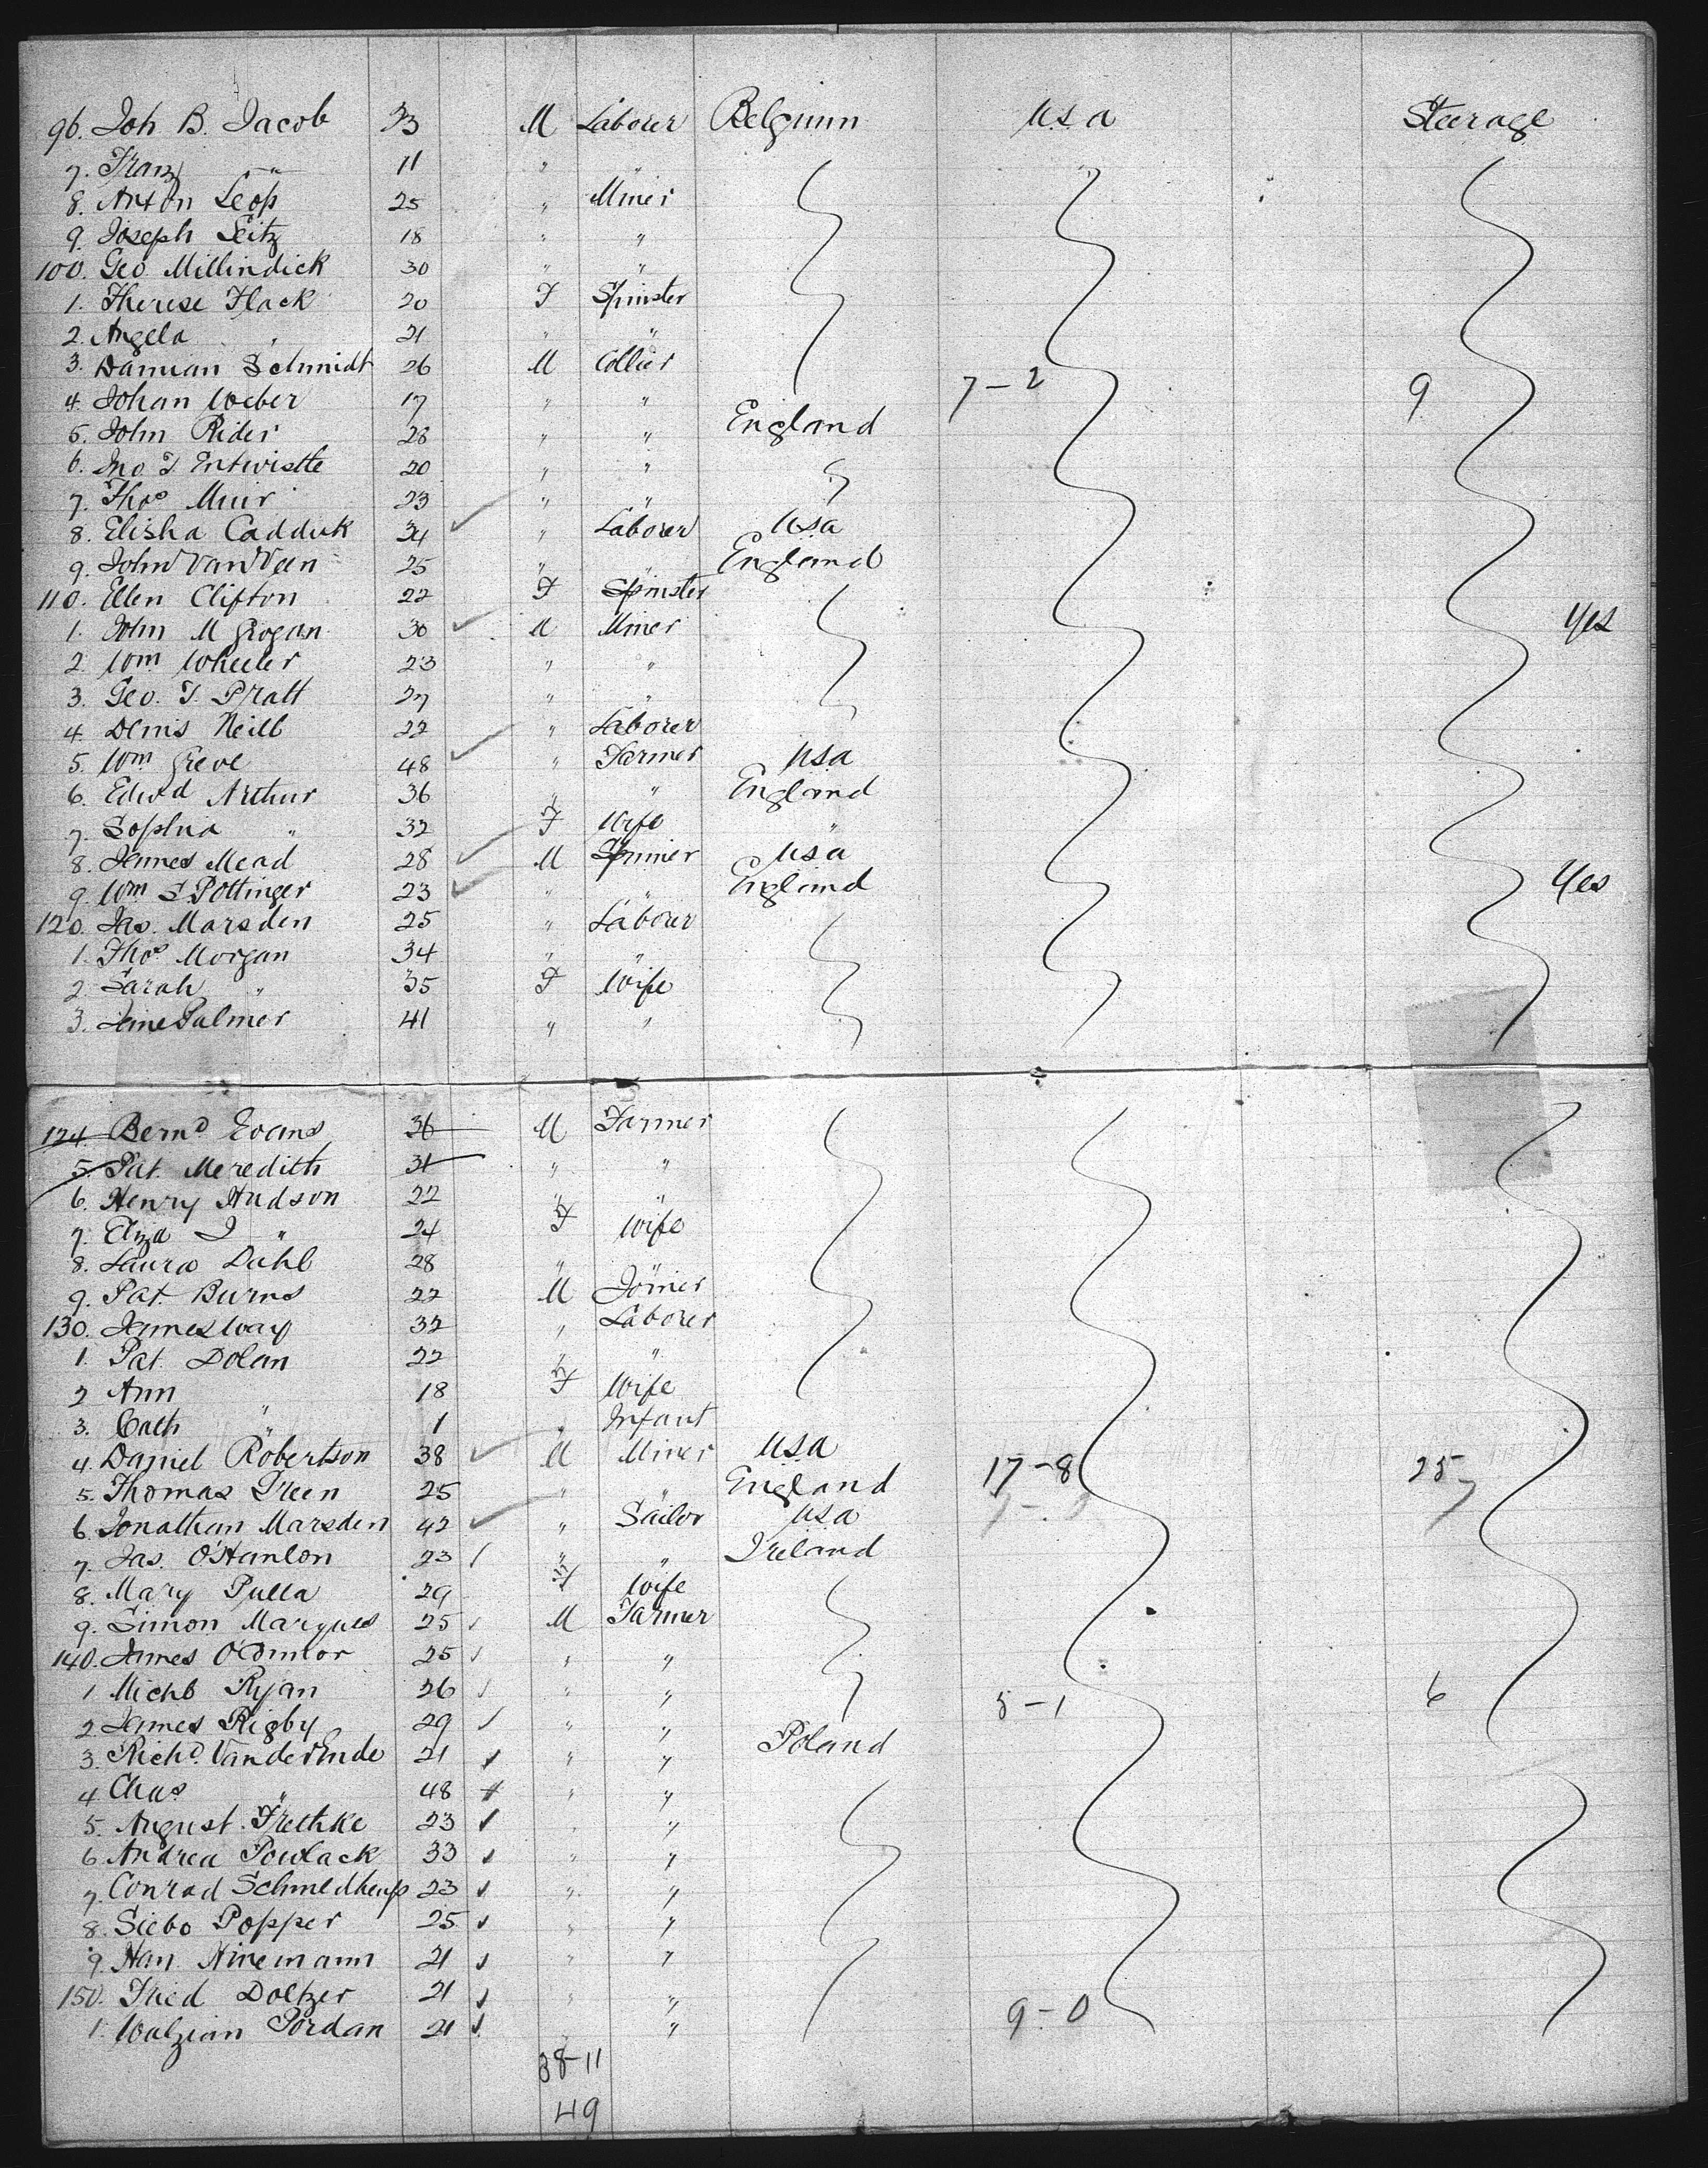 96. Joh B. Jacob 33 M Laborer Belgium USA Steerage
7. Franz " 11 " "
8. Anton Leop 25 " Miner
9. Joseph Seitz 18 " "
100. Geo Millindick 30 " "
1. Therese Flack 20 F Spinster
2. Angela " 21 " "
3. Damian Schmidt 26 M Collier 7-2 9
4. Johan Weber 17 " "
5. John Rider 28 " " England
6. Jno. T. Entwistle 20 " "
7. Thos Muir 23 " "
8. Elisha Cadduk 34 " Laborer USA
9. John Van Veen 25 " " England
110. Ellen Clifton 22 F Spinster
1. John M Grogan 30 M Miner Yes
2. Wm Wheeler 23 " "
3. Geo. T. Pratt 27 " "
4. Denis Neill 22 " Laborer
5. Wm Greve 48 " Farmer USA
6. Edwd Arthur 36 " " England
7. Sophia " 32 F Wife "
8. James Mead 28 M Spinner USA
9. Wm S Pottinger 23 " " England Yes
120. Jas. Marsden 25 " Laborer
1. Thos Morgan 34 " "
2. Sarah " 35 F Wife
3. Jane Palmer 41 " "
124. Bernd Evans 36 M Farmer
5. Pat. Meredith 31 " "
6. Henry Hudson 22 " "
7. Eliza J " 24 F Wife
8. Laura Dahl 28 " "
9. Pat. Burns 22 M Joiner
130. James Way 32 " Laborer
1. Pat. Dolan 22 " "
2 Ann 18 F Wife
3. Cath " 1 " Infant
4. Daniel Robertson 38 M Miner USA 17-8 25
5. Thomas Green 25 " " England
6. Jonathan Marsden 42 " Sailor USA
7. Jas. O'Hanlon 23 " " Ireland
8. Mary Pulla 29 F Wife
9. Simon Marques 25 M Farmer
140. James O'Connor 25 " "
1 Michl Ryan 26 " " 5-1 6
2. James Rigby 29 " "
3. Richd. VanderEnde 21 " " Poland
4 Chas " 48 " "
5. August Frethke 23 " "
6 Andrea Powlack 33 " "
7. Conrad Schmedkenp 23 " "
8. Siebo Popper 25 " "
9. Han Hinemann 21 " "
150. Fried Doltzer 21 " "
1. Walzian Pordan 21 " " 9-0
38-11
49